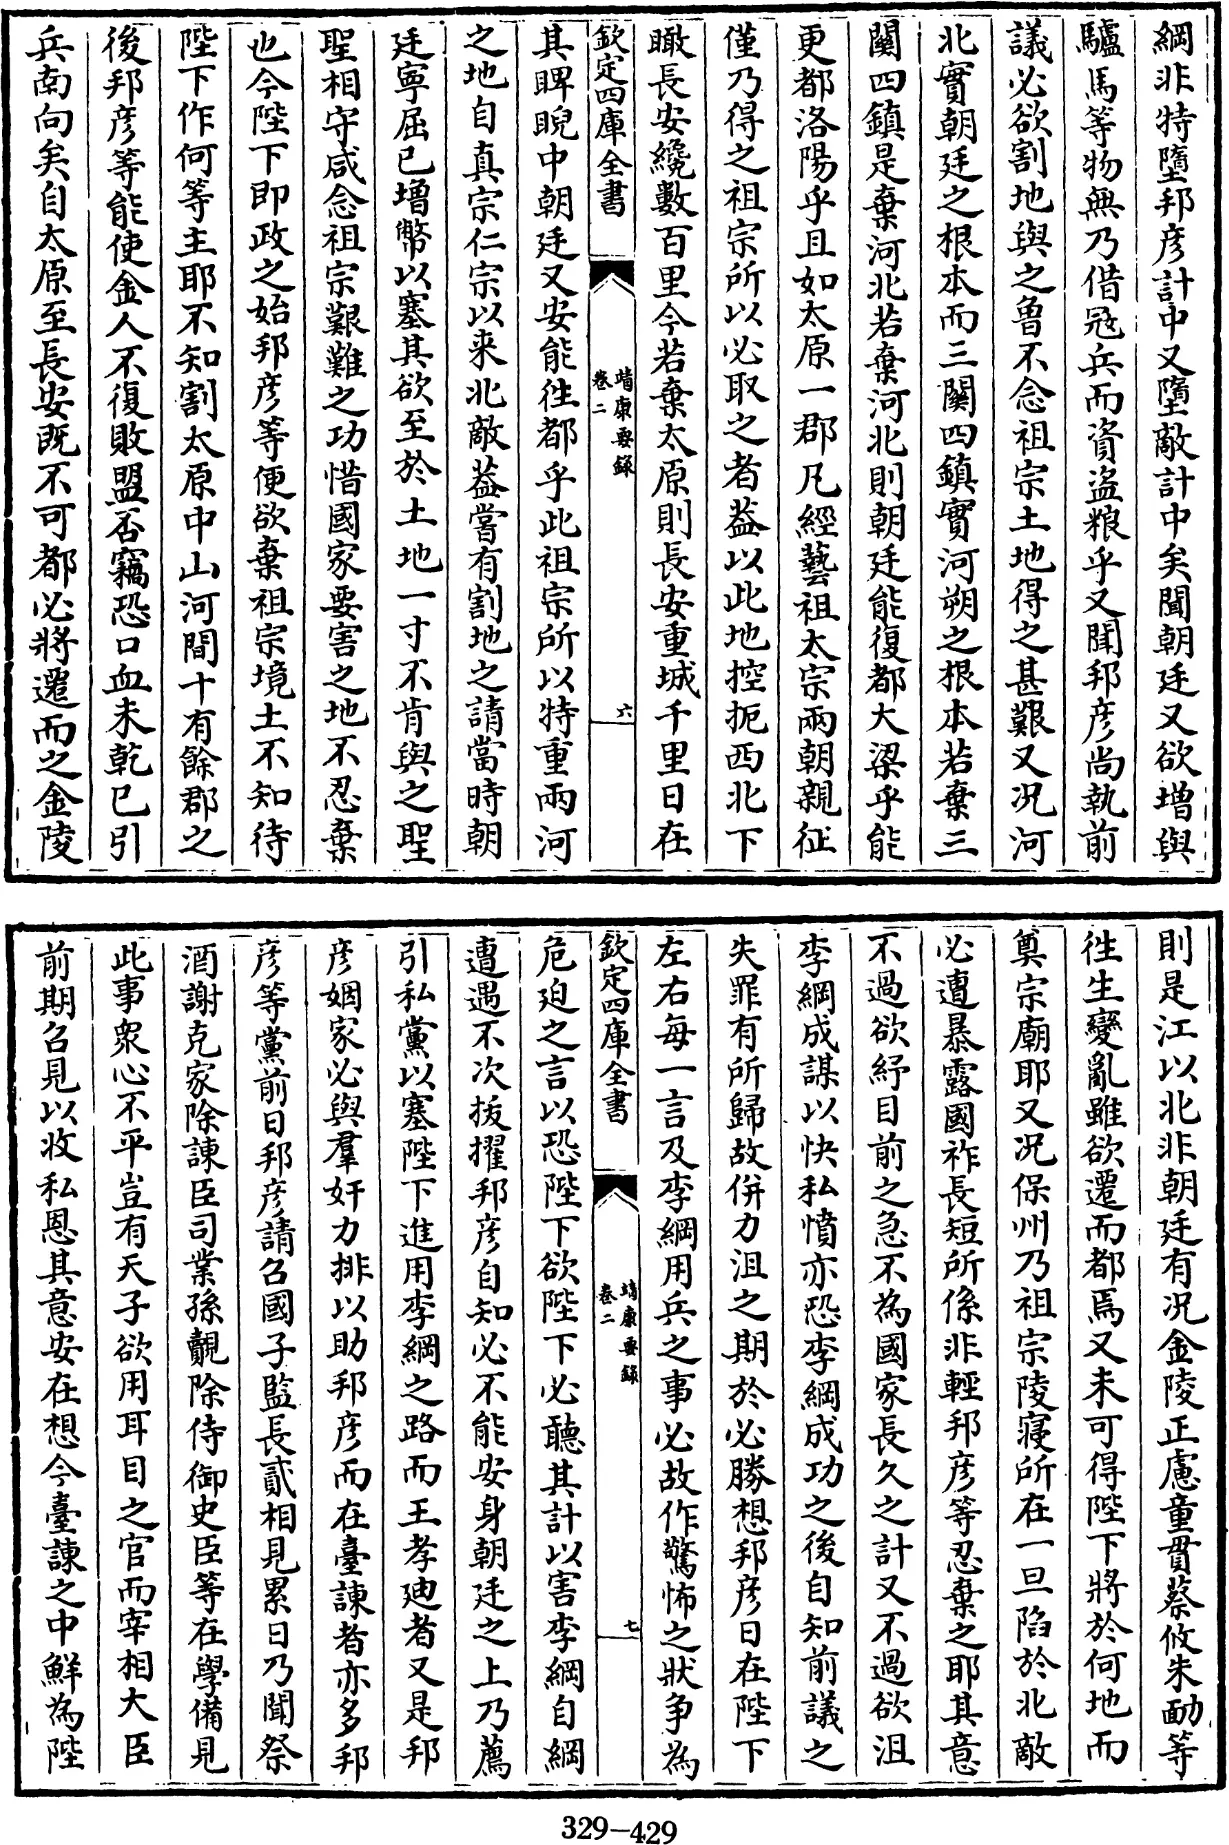 綱非特墮邦彦計中又墮敵計中矣聞朝廷又欲増與
驢馬等物無乃借冦兵而資盗粮乎又聞邦彦尚執前
議必欲割地與之魯不念祖宗土地得之甚艱又况河
北實朝廷之根本而三關四鎮實河朔之根本若棄三
關四鎮是棄河北若棄河北則朝廷能復都大梁乎能
更都洛陽乎且如太原一郡凡經藝祖太宗兩朝親征
僅乃得之祖宗所以必取之者葢以此地控扼西北下
瞰長安纔數百里今若棄太原則長安重城千里日在
欽定四庫全書
靖康要録
卷二
六
其睥睨中朝廷又安能徃都乎此祖宗所以特重兩河
之地自真宗仁宗以来北敵葢嘗有割地之請當時朝
廷寧屈已增幣以塞其欲至於土地一寸不肯與之聖
聖相守咸念祖宗艱難之功惜國家要害之地不忍棄
也今陛下即政之始邦彦等便欲棄祖宗境土不知待
陛下作何等主耶不知割太原中山河間十有餘郡之
後邦彦等能使金人不復敗盟否竊恐口血未乾已引
兵南向矣自太原至長安既不可都必將遷而之金陵
則是江以北非朝廷有况金陵正慮童貫蔡攸朱勔等
徃生變亂雖欲遷而都焉又未可得陛下將於何地而
奠宗廟耶又况保州乃祖宗陵寝所在一旦陷於北敵
必遭暴露國祚長短所係非輕邦彦等忍棄之耶其意
不過欲紓目前之急不為國家長久之計又不過欲沮
李綱成謀以快私憤亦恐李綱成功之後自知前議之
失罪有所歸故併力沮之期於必勝想邦彦日在陛下
左右每一言及李綱用兵之事必故作驚怖之狀争為
欽定四庫全書
靖康要録
卷二
七
危廹之言以恐陛下欲陛下必聽其計以害李綱自綱
遭遇不次拔擢邦彦自知必不能安身朝廷之上乃薦
引私黨以塞陛下進用李綱之路而王孝廸者又是邦
彦姻家必與羣奸力排以助邦彦而在臺諫者亦多邦
彦等黨前日邦彦請召國子監長貳相見累日乃聞祭
酒謝克家除諫臣司業孫覿除侍御史臣等在學備見
此事衆心不平豈有天子欲用耳目之官而宰相大臣
前期召見以收私恩其意安在想今臺諫之中鮮為陛
329-429